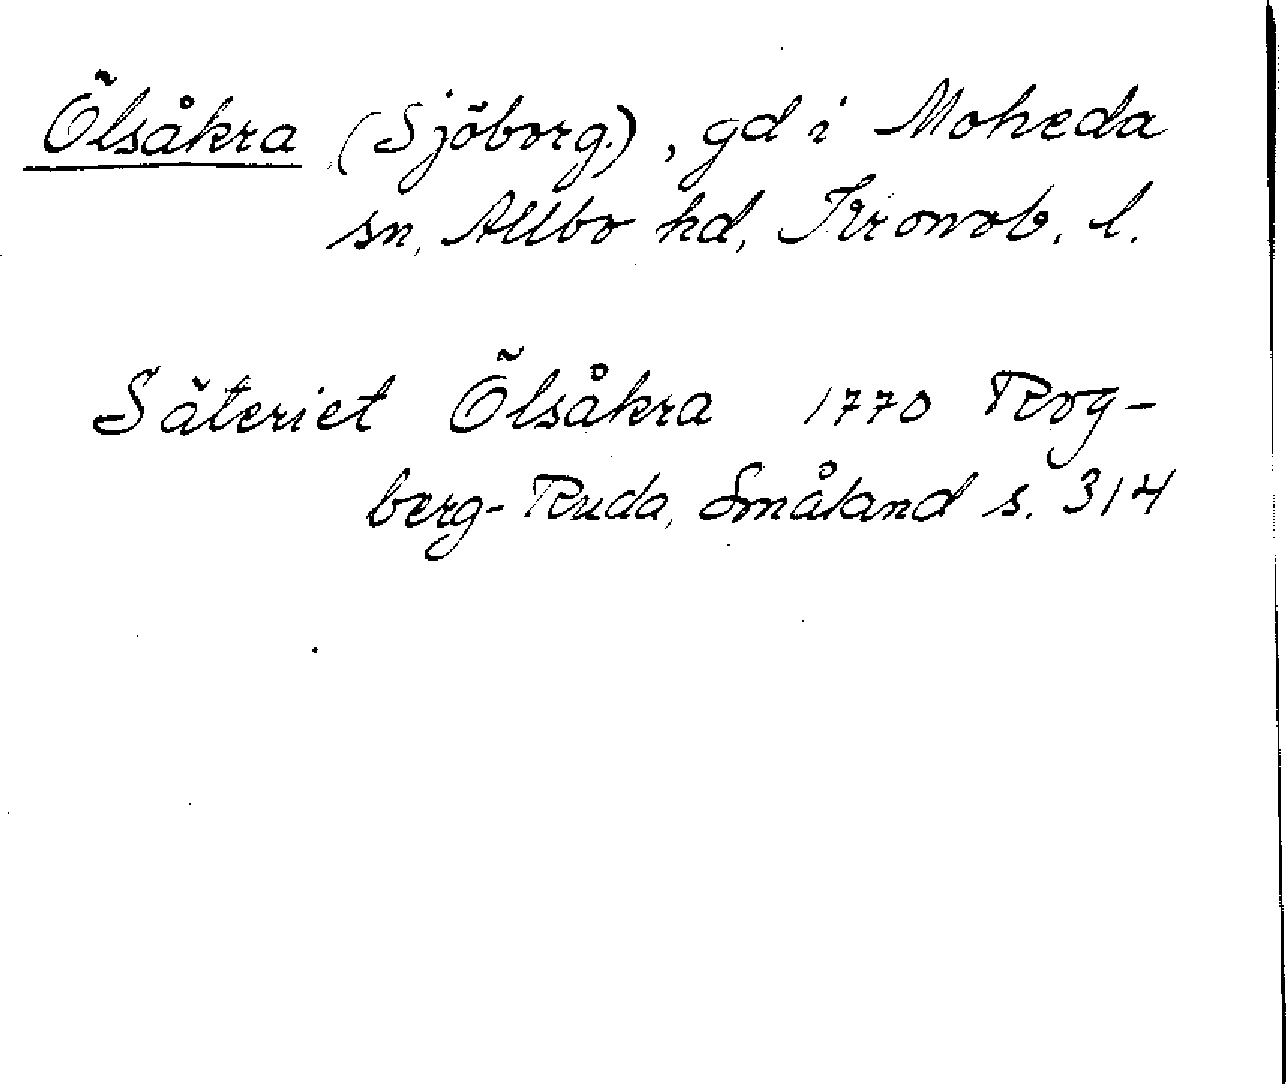 Ölsåkra (Sjöborg.), gd i Moheda
sn, Allbo hd, Kronob. l.
Säteriet Ölsåkra 1770 Rog-
berg-Ruda, Småland s. 314